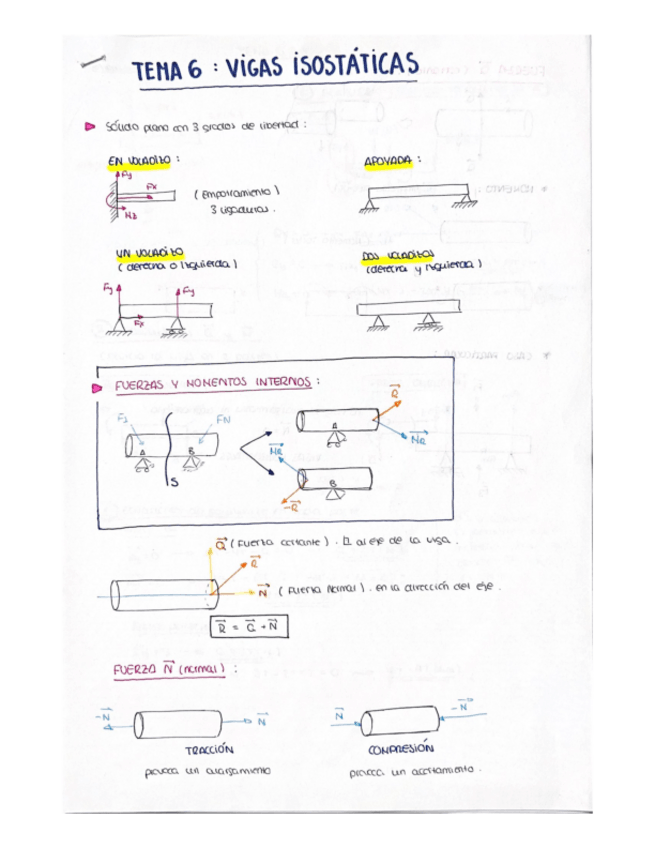 TEMA 6 : VIGAS ISOSTÁTICAS
Sólido plano con 3 grados de libertad :
EN VOLADIZO :
APOYADA :
Fy
Fx
Mz
( Empotramiento )
3 ligaduras .
UN VOLADIZO
( derecha o izquierda )
DOS VOLADIZOS
(derecha y izquierda )
Fy
Fy
Fx
FUERZAS Y MOMENTOS INTERNOS :
F1
FN
A
B
S
A
R
MR
MR
B
-R
Q ( Fuerza cortante ) . ⊥ al eje de la viga .
R
N ( Fuerza Normal ) . en la dirección del eje .
R = Q + N
FUERZA N (normal) :
-N
N
N
-N
TRACCIÓN
COMPRESIÓN
provoca un alargamiento
provoca un acortamiento .